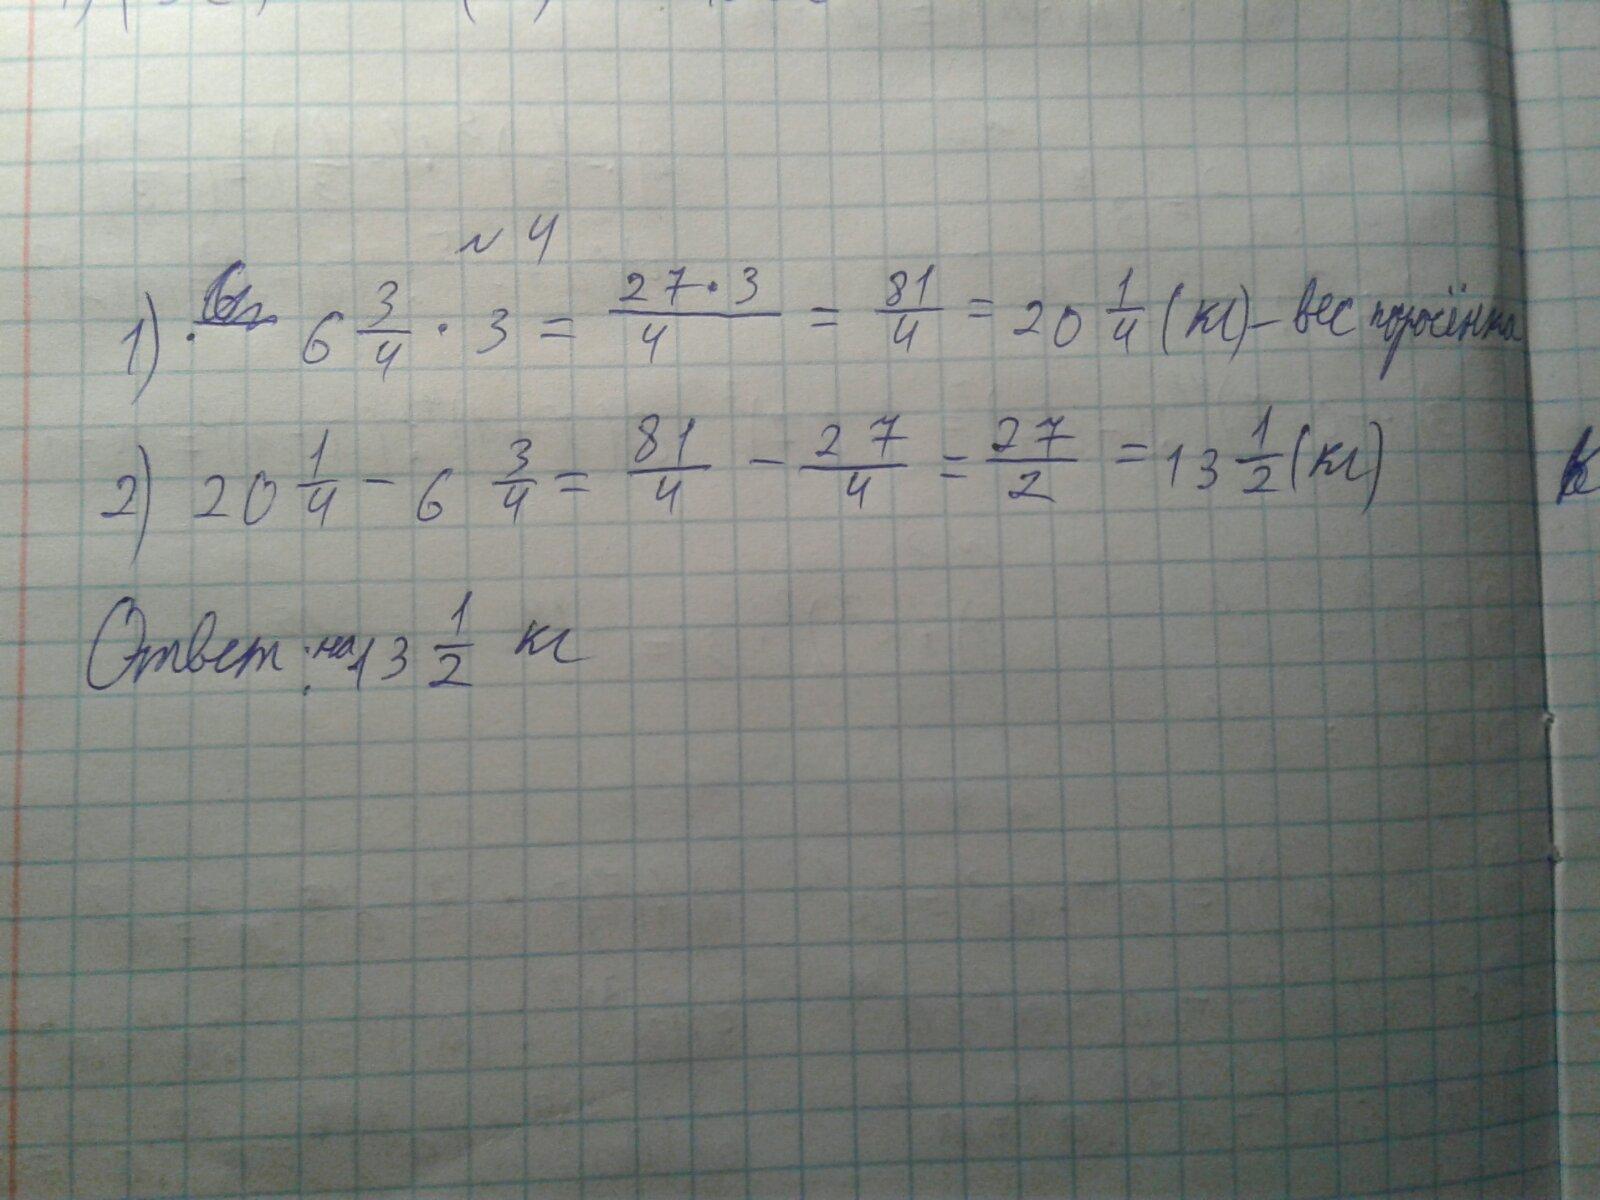 № 4
1) 6 3/4 · 3 = 27·3/4 = 81/4 = 20 1/4 (кг) – вес поросёнка
2) 20 1/4 – 6 3/4 = 81/4 – 27/4 = 27/2 = 13 1/2 (кг)
Ответ: на 13 1/2 кг